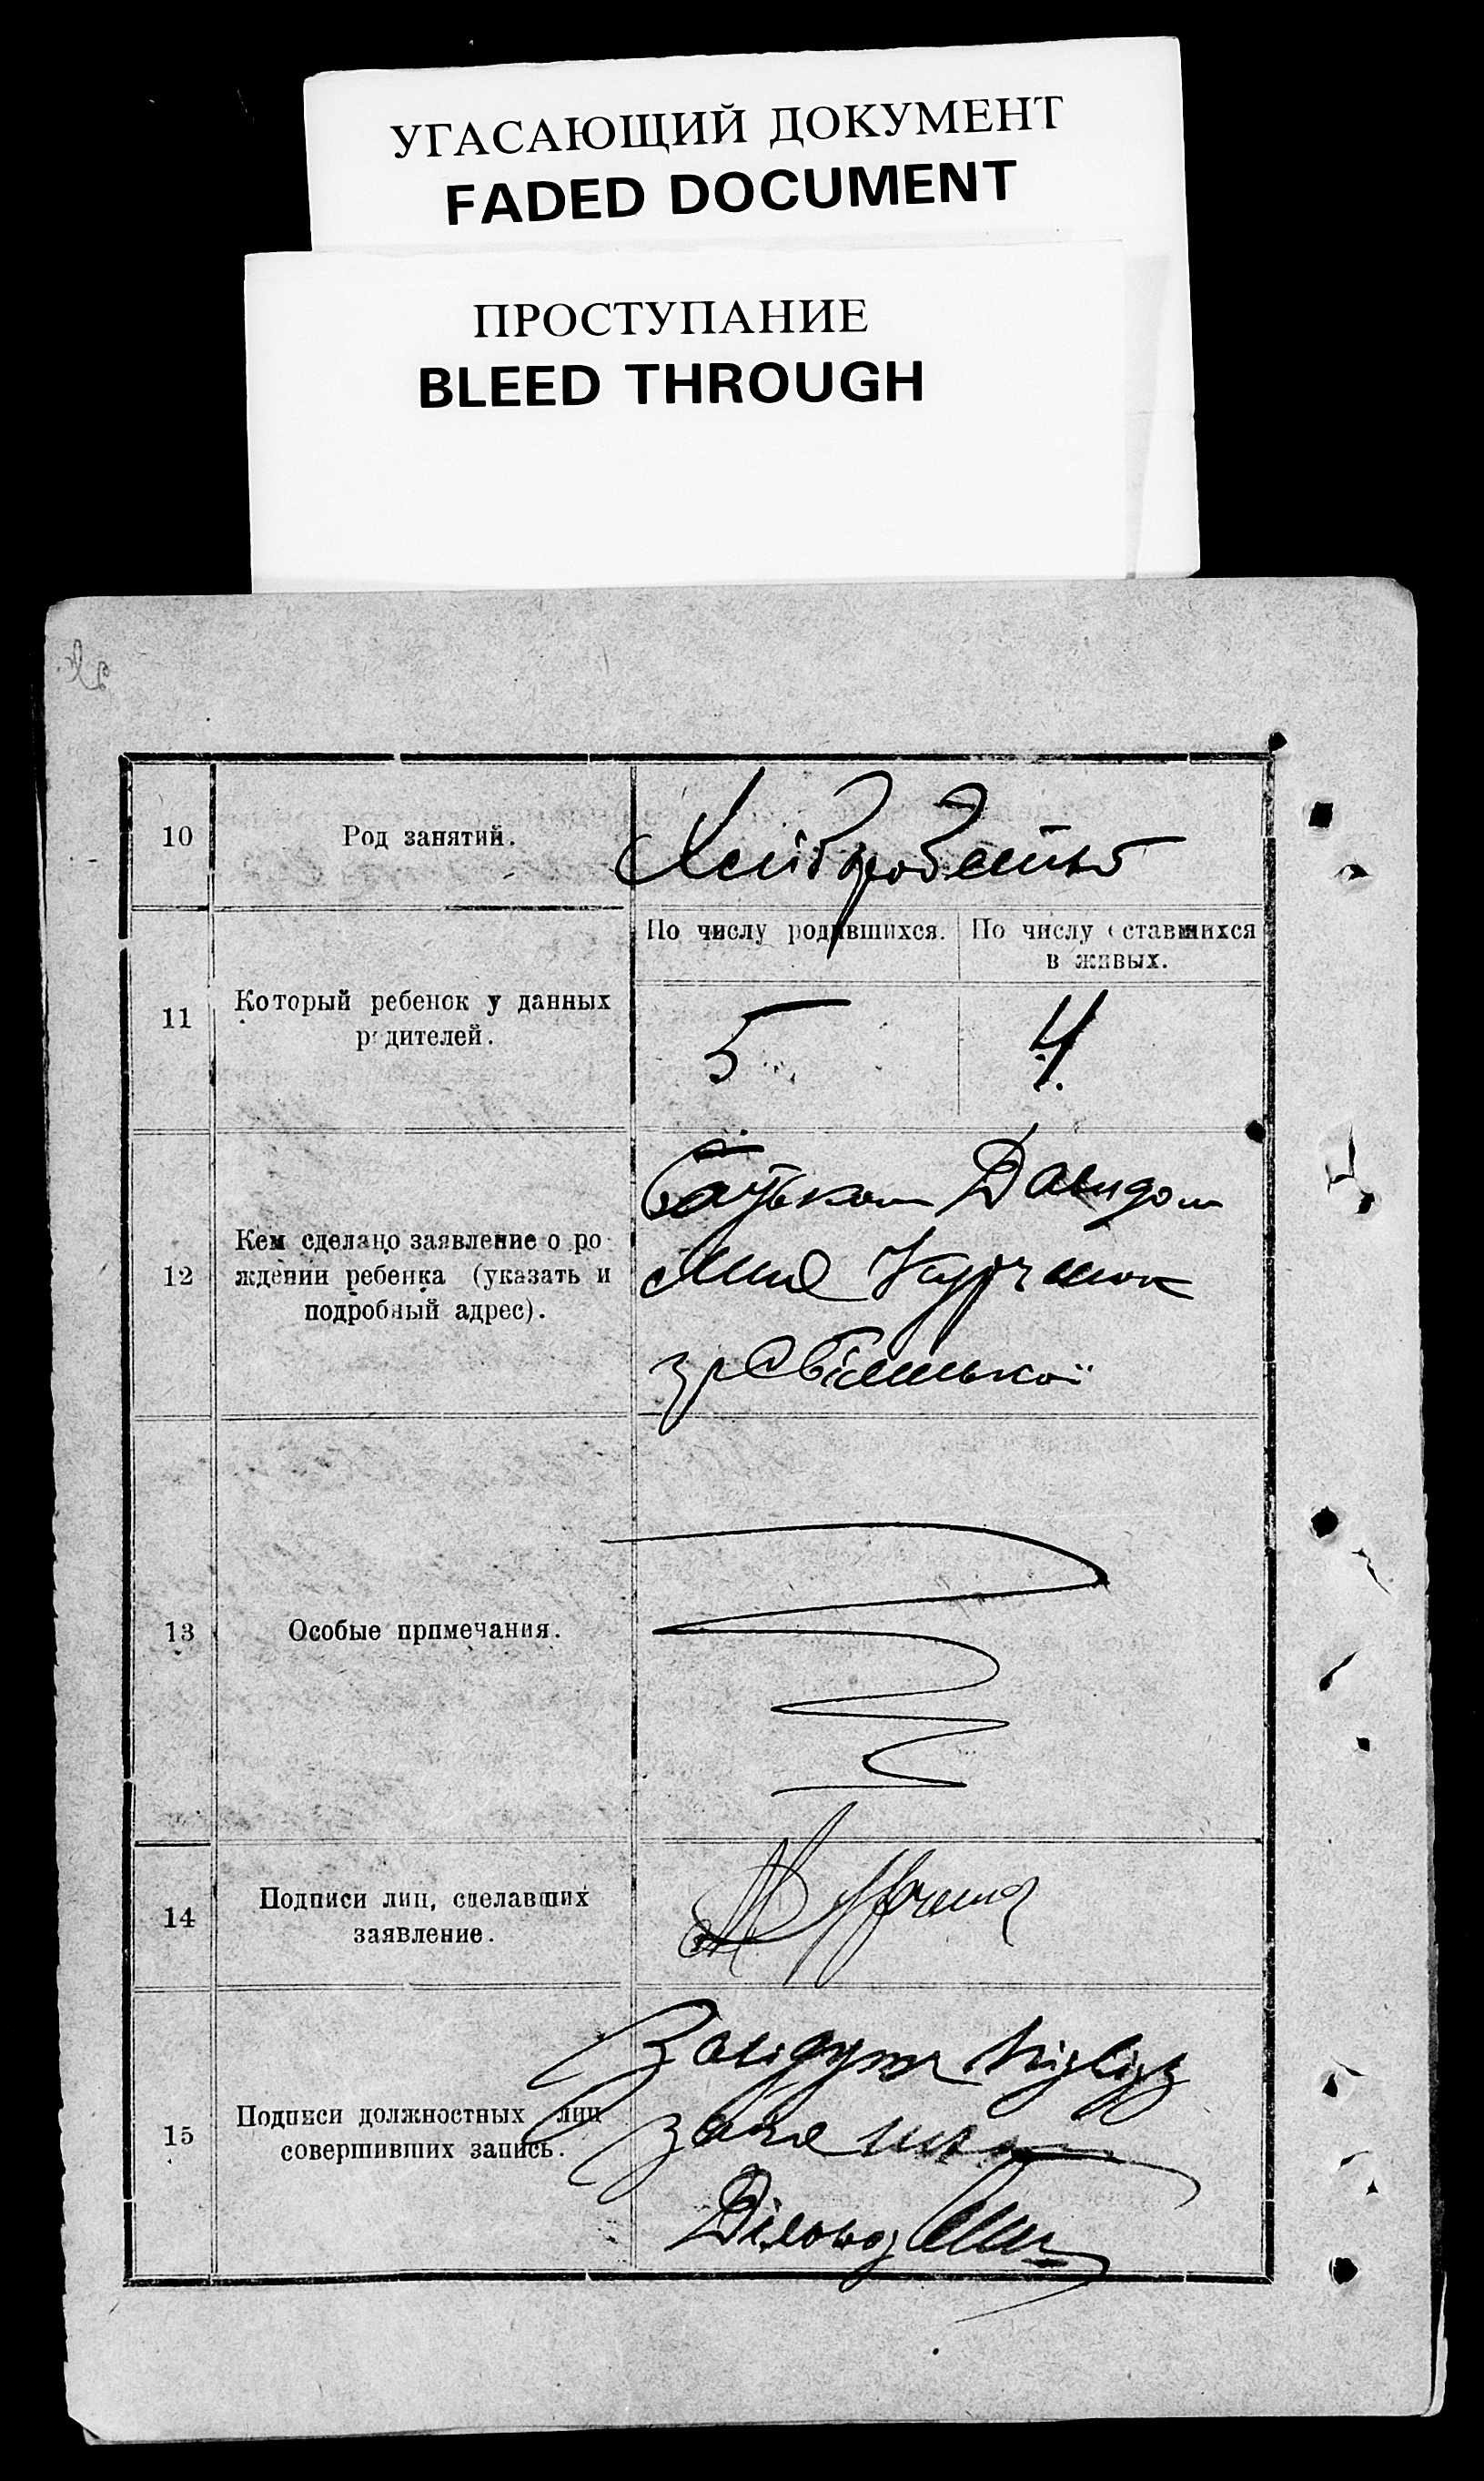 УГАСАЮЩИЙ ДОКУМЕНТ
FADED DOCUMENT
ПРОСТУПАНИЕ
BLEED THROUGH
10
Род занятий.
Хліборобство
11
Который ребенок у данных
родителей.
По числу родившихся.
По числу оставшихся
в живых.
5
4
12
Кем сделано заявление о ро
ждении ребенка (указать и
подробный адрес).
Батьком Давидом
13
Особые примечания.
14
Подписи лиц, сделавших
заявление.
15
Подписи должностных лиц
совершивших запись.
Завідуюч
Діловод